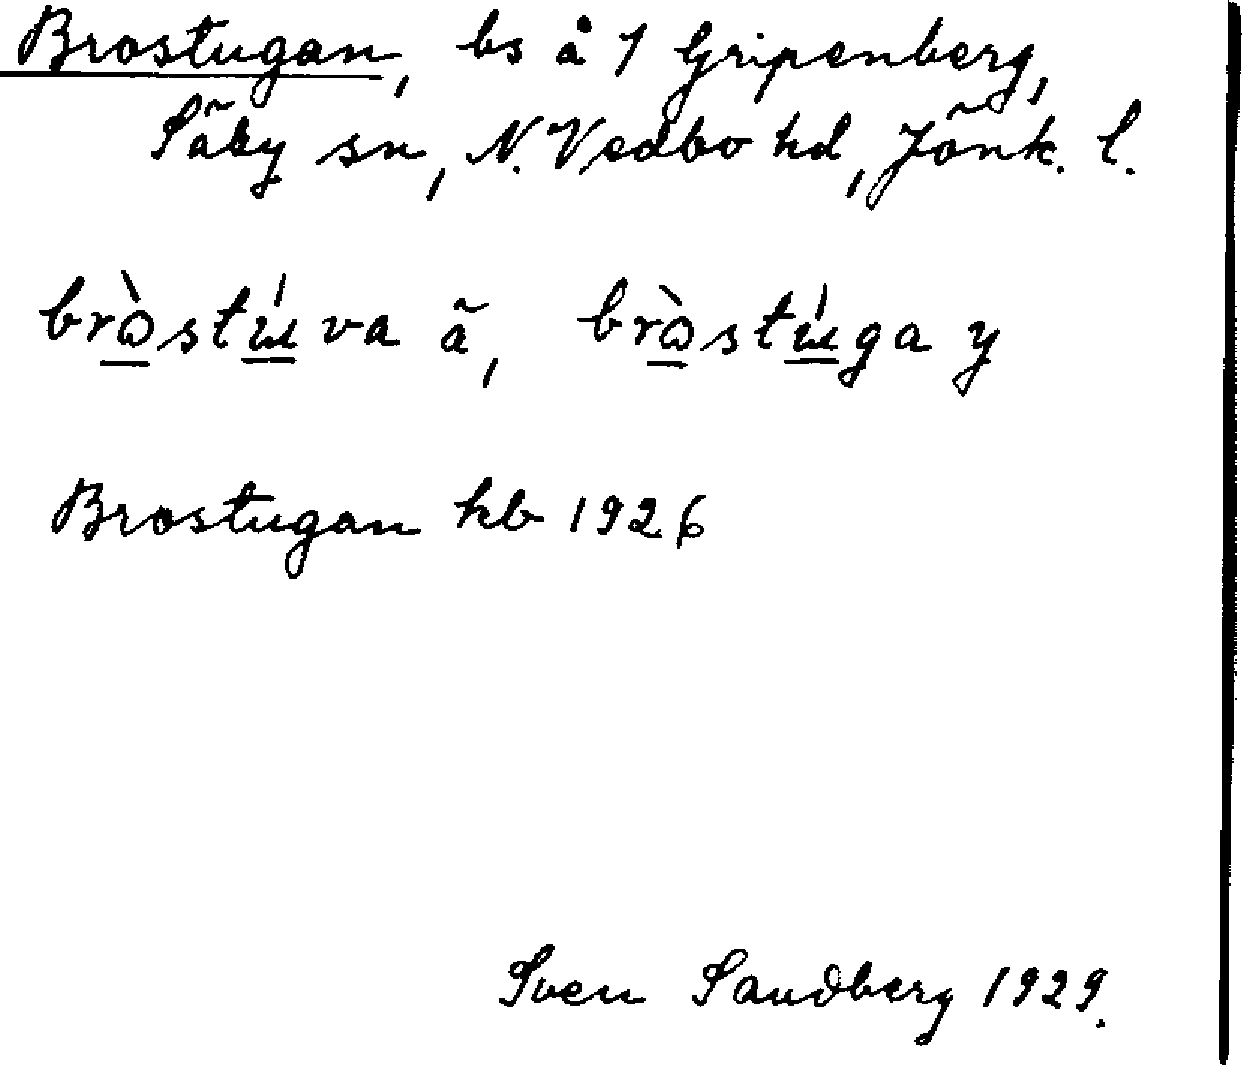 Brostugan, bs å 1 Gripenberg,
Säby sn, N. Vedbo hd, Jönk. l.
brò̲stú̲va ä, brò̲stú̲ga y
Brostugan kb 1926
Sven Sandberg 1929.